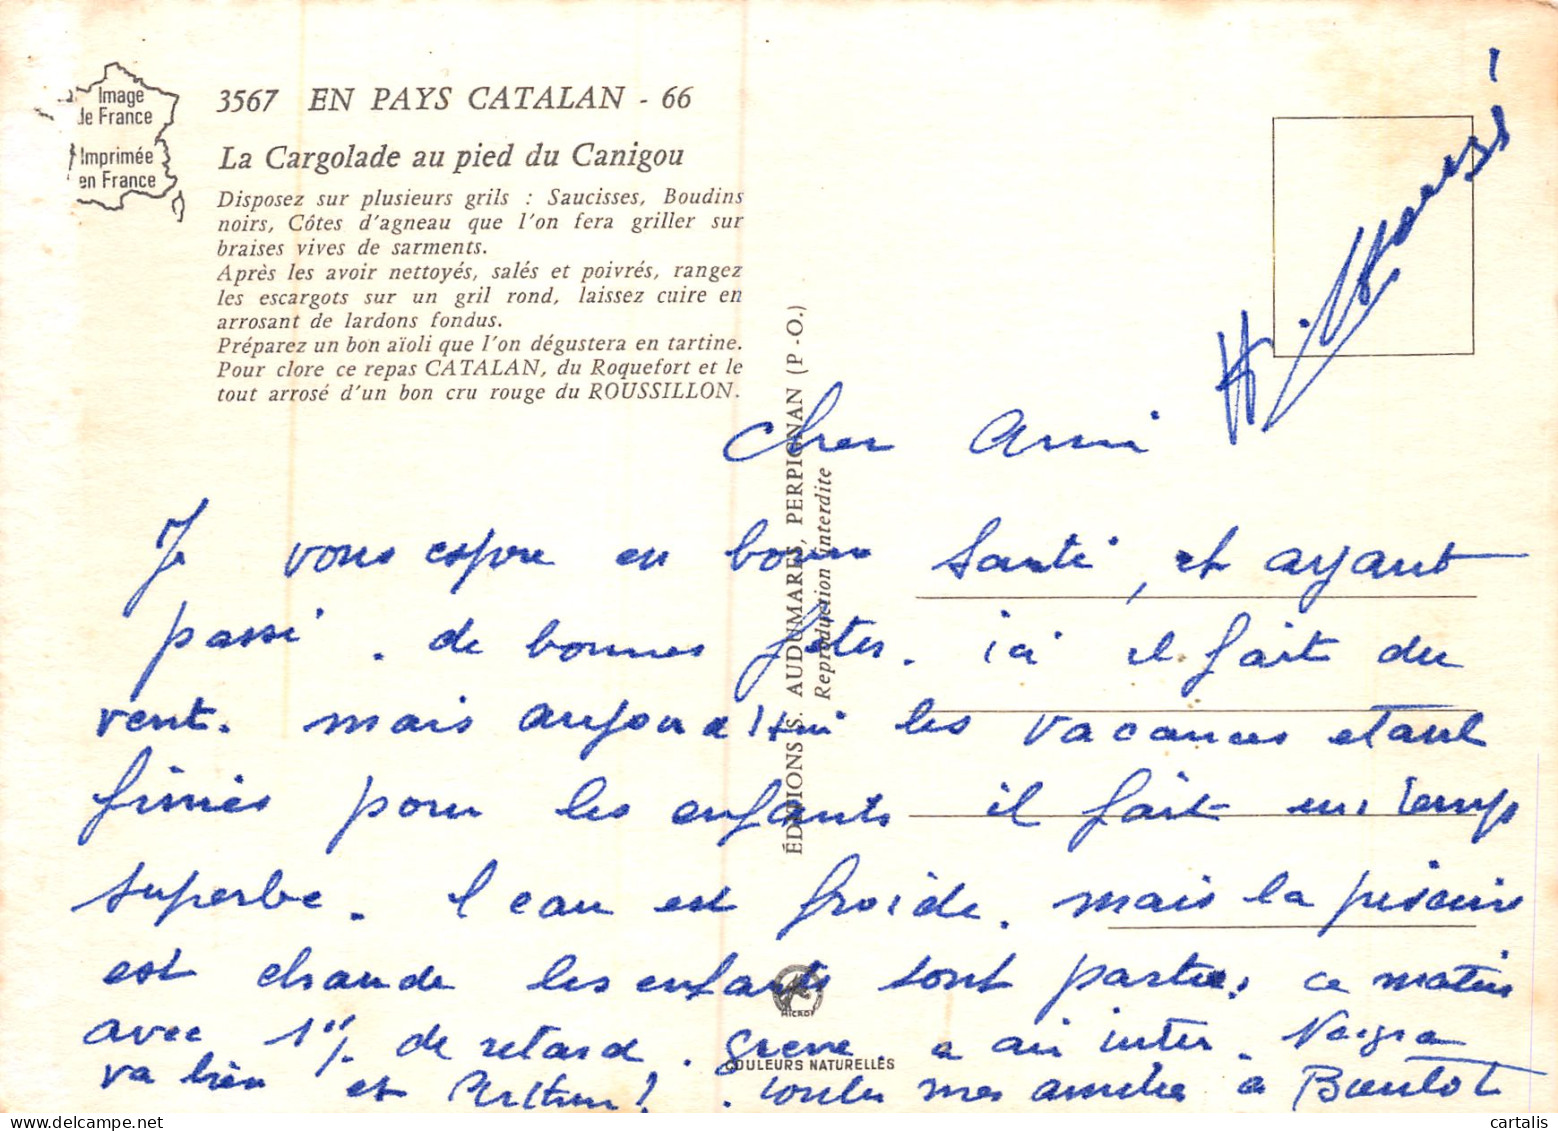 Image
de France
Imprimée
en France
3567 EN PAYS CATALAN - 66
La Cargolade au pied du Canigou
Disposez sur plusieurs grils : Saucisses, Boudins
noirs, Côtes d'agneau que l'on fera griller sur
braises vives de sarments.
Après les avoir nettoyés, salés et poivrés, rangez
les escargots sur un gril rond, laissez cuire en
arrosant de lardons fondus.
Préparez un bon aïoli que l'on dégustera en tartine.
Pour clore ce repas CATALAN, du Roquefort et le
tout arrosé d'un bon cru rouge du ROUSSILLON.
ÉDITIONS S. AUDUMARES, PERPIGNAN (P.-O.)
Reproduction interdite
cher Ami
Je vous espere en bonne santé, et ayant
passé. de bonnes fetes. ici il fait du
vent. mais aujourd'hui les vacances etant
finies pour les enfants il fait un temps
superbe. l eau est froide. mais la piscine
est chaude les enfants sont parties ce matin
avec 1H de retard. greve a air inter.
va bien et
toutes mes amities a
MICRO
COULEURS NATURELLES
cartalis